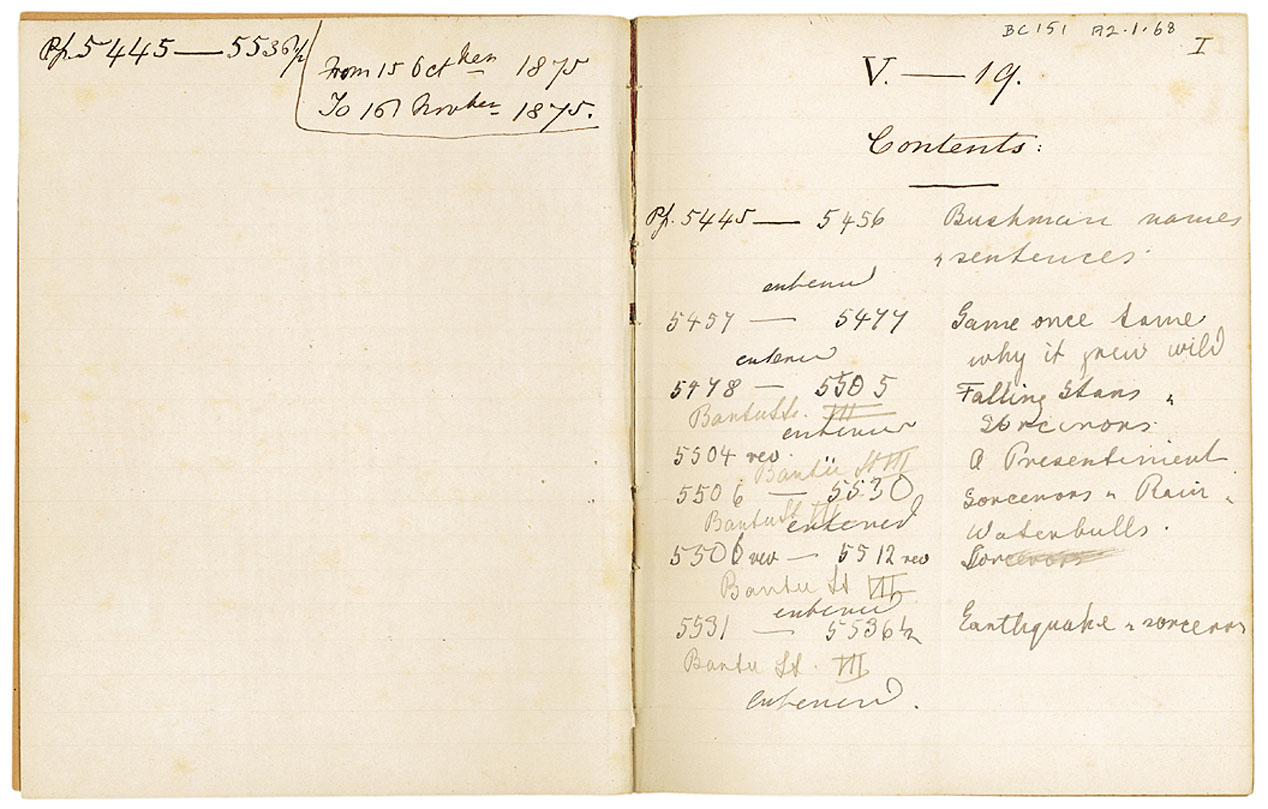 Pp. 5445 — 5536½
From 15 October 1875
To 16 November 1875.
BC 151 A2.1.68
I
V. — 19.
Contents:
Pp. 5445 — 5456 Bushman names
" sentences
entered
5457 — 5477 Game once tame
entered why it grew wild
5478 — 5505 Falling Stars "
Bantu St. VII Sorcerors
entered
5504 rev. A Presentiment
Bantu St VII
5506 — 5530 Sorcerors " Rain "
Bantu St VII Waterbulls.
entered
5506 rev — 5512 rev Sorcerors
Bantu St VII
entered
5531 — 5536½ Earthquake " sorcerors
Bantu St. VII
entered.